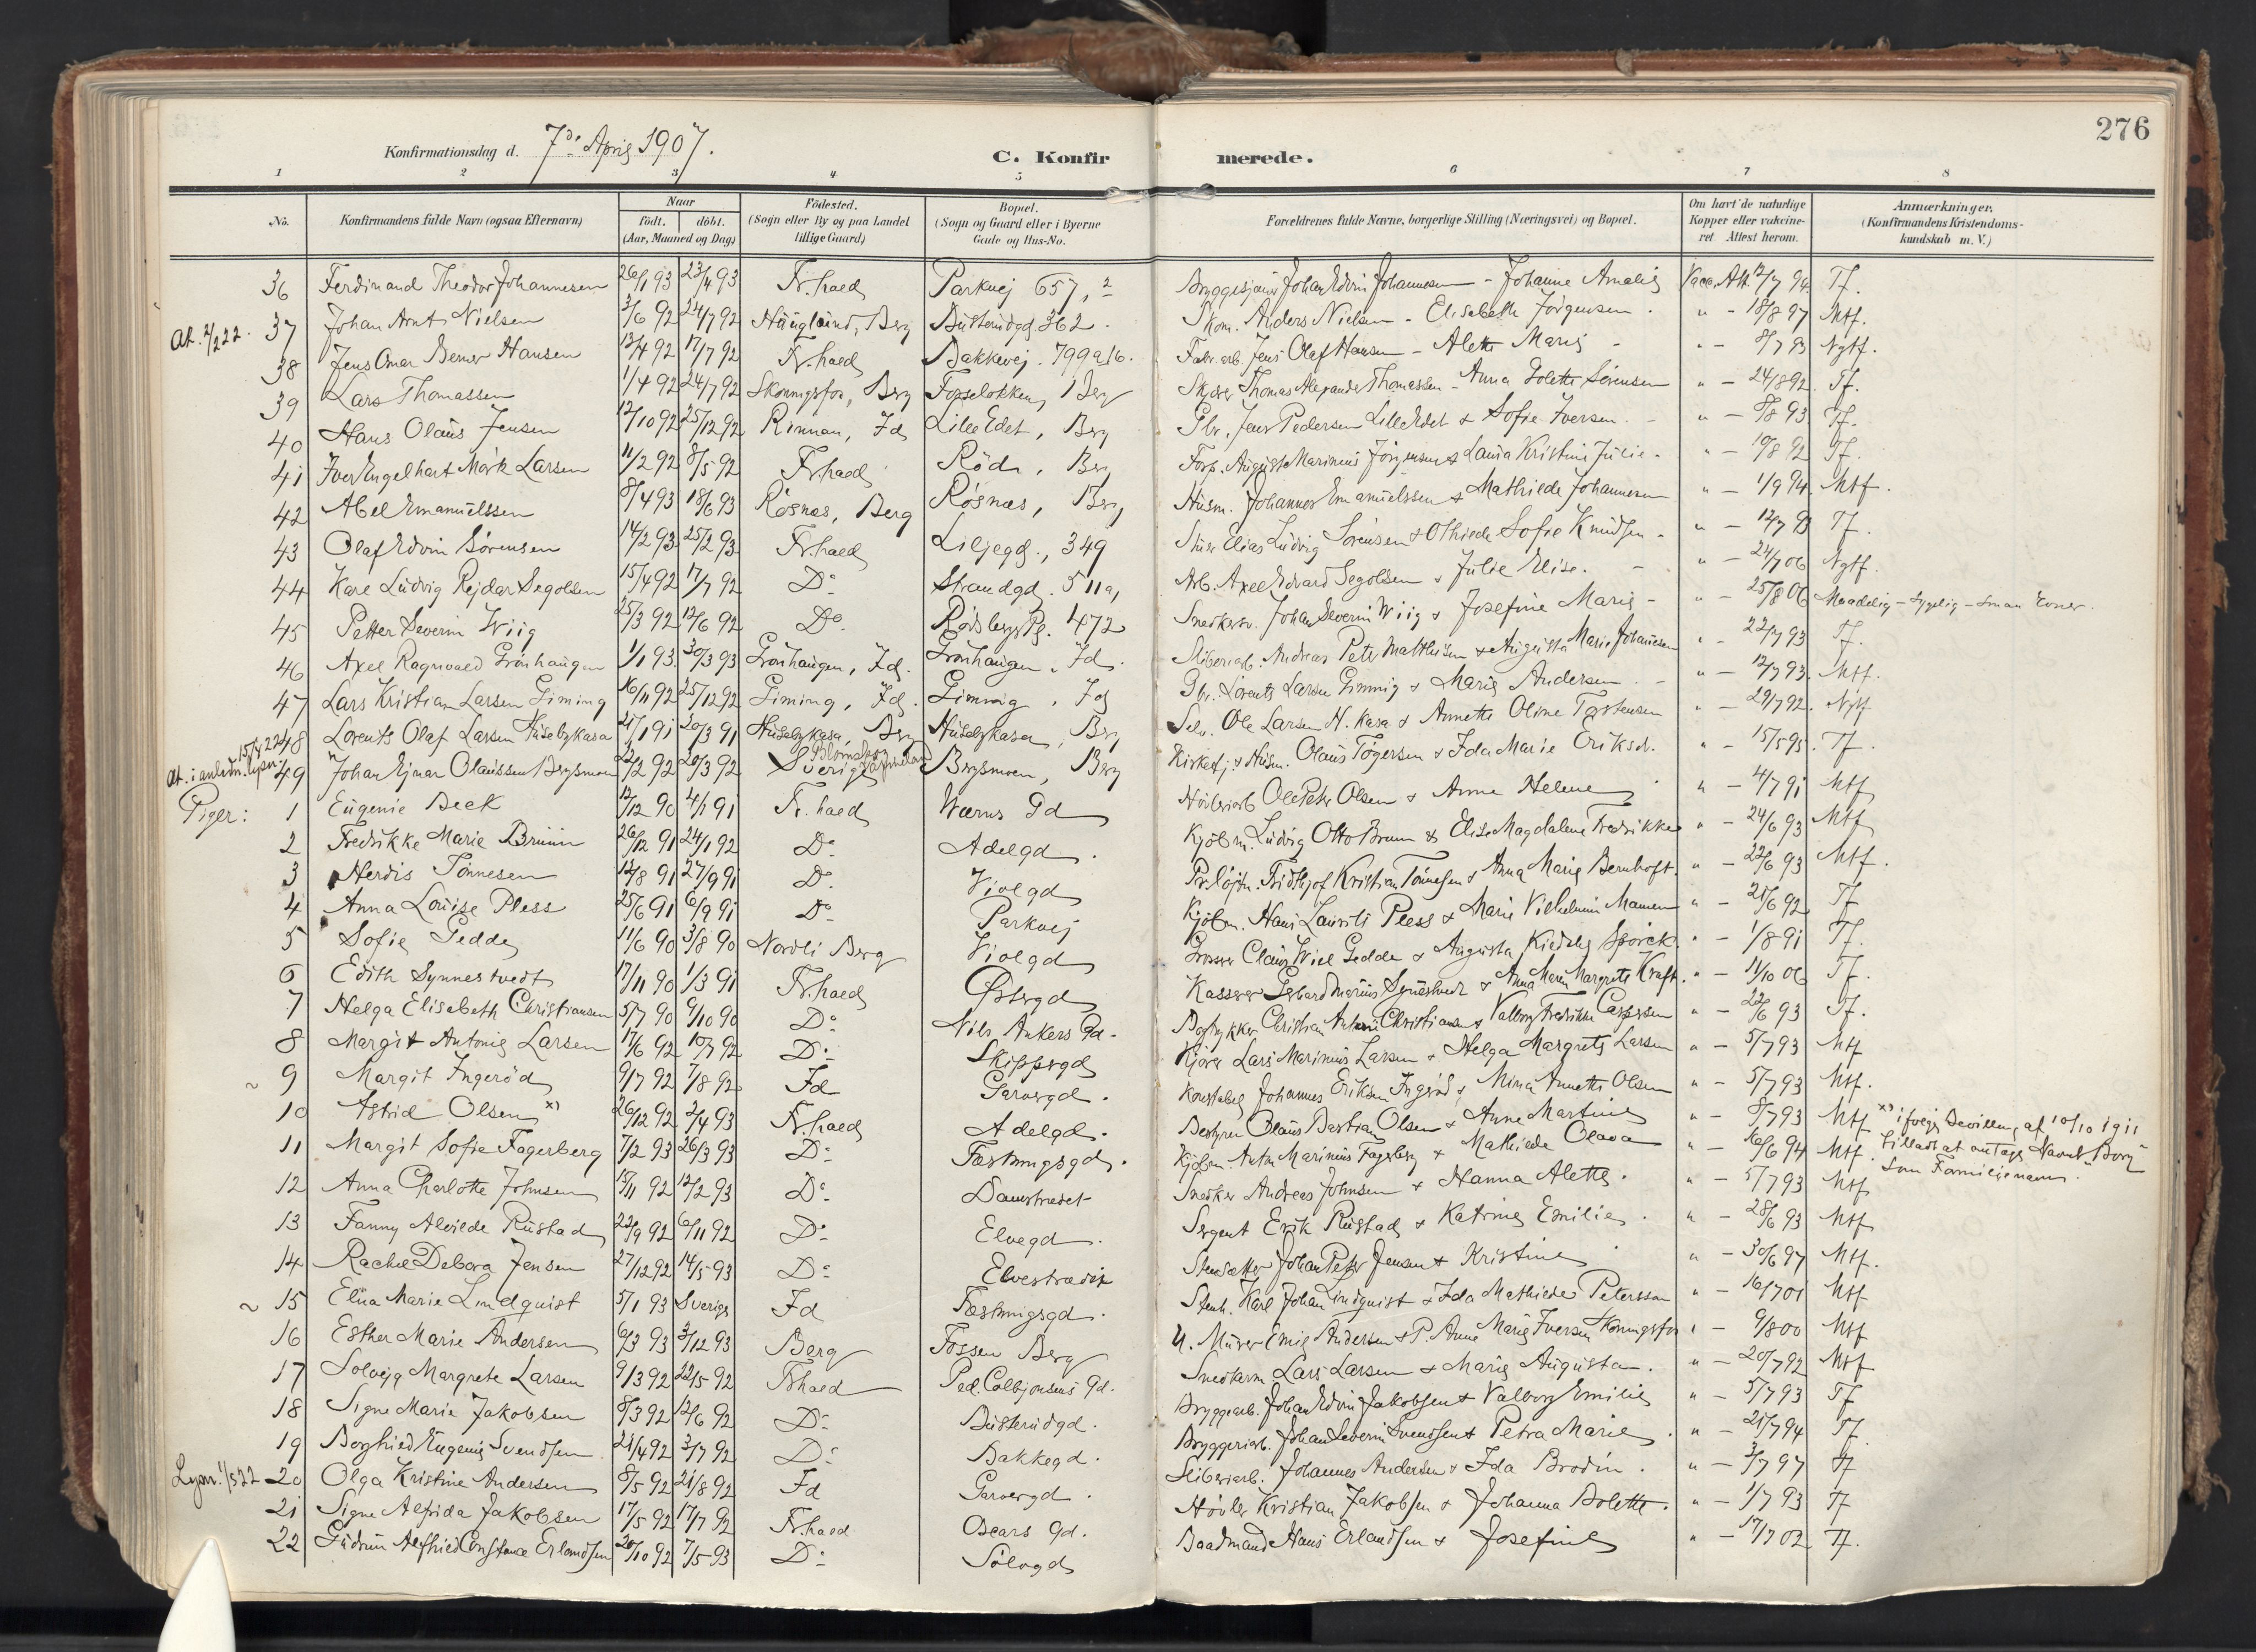 276
Konfirmationsdag d. 7de April 1907.
C. Konfirmerede.
1 2 3 4 5 6 7 8
No. Konfirmandens fulde Navn (ogsaa Efternavn) Naar födt. döbt. (Aar, Maaned og Dag) Födested. (Sogn eller By og paa Landet tillige Gaard) Bopæl. (Sogn og Gaard eller i Byerne Gade og Hus-No. Forældrenes fulde Navne, borgerlige Stilling (Næringsvei) og Bopæl. Om havt de naturlige Kopper eller vakcineret Attest herom. Anmærkninger, (Konfirmandens Kristendomskundskab m. V.)
36 Ferdinand Theodor Johannesen 26/1 93 23/4 93 Fr.hald Parkvej 657, 2 Johan Edvin Johannesen - Johanne Amalie Vacc. Att. 12/7 94. Tf.
At. 2/2 22. 37 Johan Arnt Nielsen 3/6 92 24/7 92 Hauglund, Berg Busterudgd. 362. Skom. Anders Nielsen - Elisabeth Jørgensen. " - 18/8 97 Mtf.
38 Jens Omar Berner Hansen 13/4 92 17/7 92 Fr.hald Bakkevej. 799a16. Fabr. arb. Jens Olaf Hansen - Alette Marie - " - 8/7 93 Ngtf.
39 Lars Thomassen 1/4 92 24/7 92 Skonningsfos, Berg Fosseløkken, Berg Skjører Thomas Alexander Thomassen - Anna Bolette Sørensen " - 24/8 92. Tf.
40 Hans Olaus Jensen 12/10 92 25/12 92 Rinnan, Id Lille Edet, Berg Gbr. Jens Pedersen Lille Edet & Sofie Iversen - " - 8/8 93 Tf.
41 Iver Engelhart Mørk Larsen 11/2 92 8/5 92 Fr.hald Röd, Berg Forp. August Marinius Jörgensen & Laura Kristine Julie. " - 19/8 92 Tf.
42 Abel Emanuelssen 8/4 93 18/6 93 Røsnæs, Berg Røsnæs, Berg Husm. Johannes Emanuelssen & Mathilde Johannesen " - 1/9 94. Mtf.
43 Olaf Edvin Sørensen 14/2 93 25/2 93 Fr.hald Liljegd., 349 Elias Ludvig Sørensen & Othilde Sofie Knudsen - " - 12/7 93 Tf.
44 Kare Ludvig Rejdar Segolsen 15/4 92 17/7 92 Do Strandgd. 511a, Arb. Axel Edvard Segolsen & Julie Elise. - " - 24/7 06 Ngtf.
45 Petter Severin Wiig 25/3 92 12/6 92 Do. Rødsberg Pl. 472 Snedkersv. Johan Severin Wiig & Josefine Marie - " - 25/8 06 Maadelig - Sygelig - Smaa Evner.
46 Axel Ragnvald Grönhaugen 1/1 93. 30/3 93 Grönhaugen, Id. Grönhaugen, Id. Sliberiarb. Andreas Peter Matthisen & Augusta Marie Johansen " - 22/7 93 Tf.
47 Lars Kristian Larsen Giming 16/11 92 25/12 92 Giming, Id. Gimming, Id Gbr. Lorents Larsen Gimmig & Marie Andersen. - " - 12/7 93. Mtf.
48 Lorents Olaf Larsen Huselykasa 21/1 91 30/3 91 Huselykasa, Berg Huselykasa, Berg Selv. Ole Larsen H. kasa & Annette Oline Torstensen " - 29/7 92. Ngtf
At. i anledn. lysn. 15/7 22 49 Johan Ejnar Olaussen Bergsmoen 22/2 92 20/3 92 Blomskog Sverige Värmland Bergsmoen, Berg Kirketj. & Husm. Olaus Tögersen & Ida Marie Eriksd. " - 15/5 95. Tf.
Piger: 1 Eugenie Beck 12/12 90 4/1 91 Fr.hald Wærns Gd Høvleriarb Ole Peter Olsen & Anne Helene " - 4/7 91 Mtf
2 Fredrikke Marie Bruun 26/12 91 24/1 92 Do Adelgd. Kjöbm. Ludvig Otto Bruun & Elise Magdalene Fredrikke " - 24/6 93 Mtf
3 Herdis Tönnesen 12/8 91 27/9 91 Do Violgd Pr.löjtn. Fridthjof Kristian Tönnesen & Anna Marie Bernhoft. " - 22/6 93 Mtf.
4 Anna Louise Pless 25/6 91 6/9 91 Do Parkvej Kjöbm. Hans Laurits Pless & Marie Vilhelmine Mamen " - 21/6 92. Tf
5 Sofie Gedde 11/6 90 3/8 90 Nordli Berg Violgd Grosser Claus Wiel Gedde & Augusta Kjedelig Spörck. " - 1/8 91 Tf.
6 Edith Synnestvedt 17/11 90 1/3 91 Fr.hald Østergd Kasserer Gerhard Marius Synestvedt & Anna Marie Margrete Kraft. " - 11/10 06 Tf.
7 Helga Elisabeth Christiansen 5/7 90 9/10 90 Do Nils Ankers Gd. Bogtrykker Christian Anton Christiansen & Valborg Fredrikke Caspersen " - 22/6 93 Tf.
8 Margit Antonie Larsen 17/6 92 10/7 92 Do Skippergd Kjører Lars Marinius Larsen & Helga Margrete Larsen " - 5/7 93 Mtf
~ 9 Margit Ingeröd 9/7 92 7/8 92 Id Garvergd. Konstabel Johannes Eriksen Ingeröd & Mina Annette Olsen " - 5/7 93 Mtf.
10 Astrid Olsen x) 26/12 92 2/4 93 Fr.hald Adelgd. Bestyrer Olaus Bastian Olsen & Anne Martine " - 8/7 93 Mtf x) ifølge Bevilling af 10/10 1911
11 Margit Sofie Fagerberg 7/2 93 26/3 93 Do Fæstningsgd. Kjöbm. Anton Marinius Fagerberg & Mathilde Olava " - 16/6 94 Mtf. tilladt at antage Navnet "Borg"
12 Anna Charlotte Johnsen 13/11 92 12/2 93 Do Damstrædet Snedker Andreas Johnsen & Hanna Alette. " - 5/7 93 Mtf som Familjenavn.
13 Fanny Alvilde Rustad 22/9 92 6/11 92 Do Elvegd. Sergent Erik Rustad & Katrine Emilie. " - 28/6 93 Mtf
14 Rachel Debora Jensen 27/12 92 14/5 93 Do Elvestrædet Stensætter Johan Peter Jensen & Kristine " - 30/6 97 Mtf.
~ 15 Elna Marie Lindquist 5/1 93 Sverige Id Fæstningsgd. Stenh. Karl Johan Lindquist & Ida Mathilde Petersson " - 16/7 01 Mtf
16 Esther Marie Andersen 6/3 93 3/12 93 Berg Fossen Berg U. Murer Emil Andersen & P. Anne Marie Iversen Konningsfos " - 9/8 00 Mtf
17 Solvejg Margrete Larsen 9/3 92 22/5 92 Frhald Ped. Colbjörnsens Gd. Lars Larsen & Marie Augusta. " - 20/7 92 Mtf
18 Signe Marie Jakobsen 8/3 92 12/6 92 Do Busterudgd. Bryggearb. Johan Edvin Jakobsen & Valborg Emilie " - 5/7 93 Tf
19 Borghild Eugenie Svendsen 21/4 92 3/7 92 Do Bakkegd. Bryggeriarb. Johan Severin Svendsen & Petra Marie. " - 21/7 94 Tf.
Lysn. 1/5 22 20 Olga Kristine Andersen 8/5 92 21/8 92 Id Garvergd. Sliberiarb. Johannes Andersen & Ida Brodin. " - 3/7 97 Tf
21 Signe Alfrida Jakobsen 17/5 92 17/7 92 Fr.hald Oscars Gd. Høvler Kristian Jakobsen & Johanna Bolette. " - 1/7 93 Tf
22 Gudrun Alfhild Constance Erlandsen 20/10 92 7/5 93 Do Sölvgd Baadmand Hans Erlandsen & Josefine " - 17/7 02 Tf.